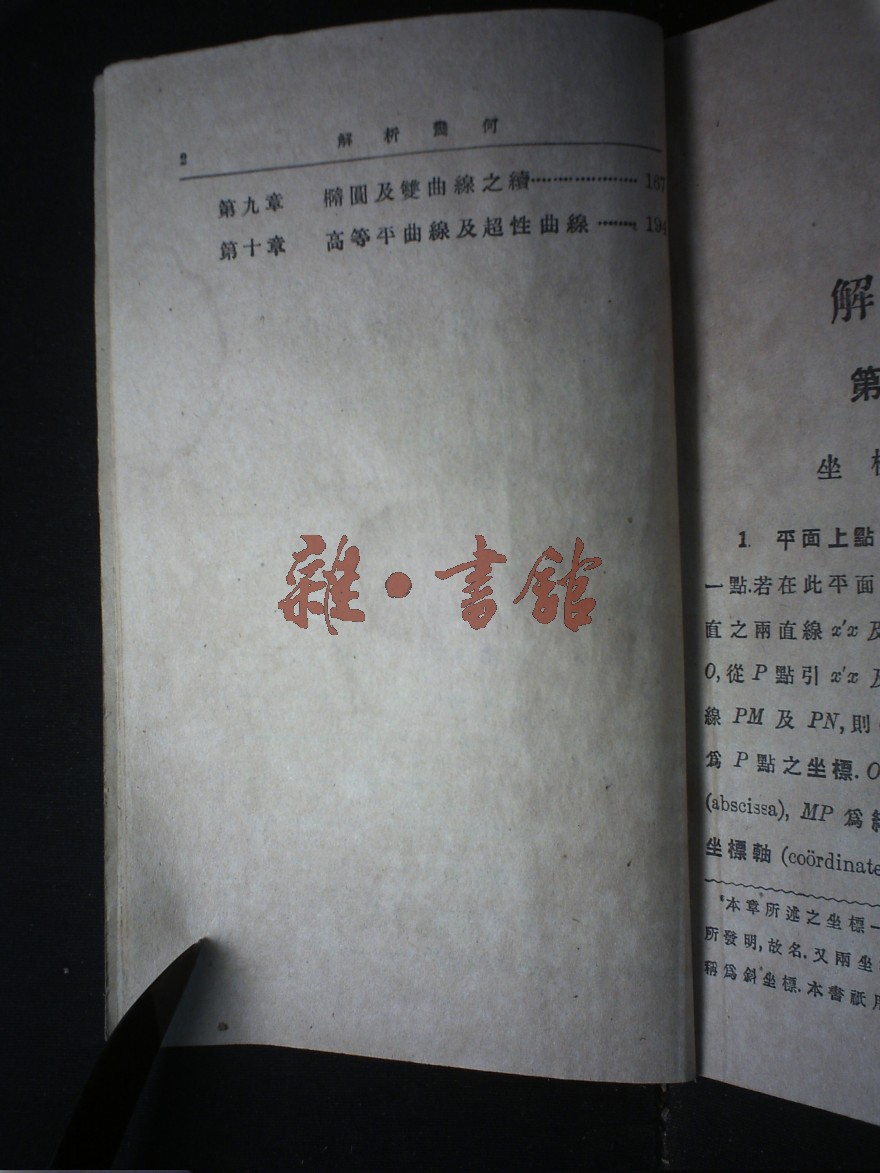 2
解析幾何
第九章 橢圓及雙曲線之續………………… 167
第十章 高等平曲線及超性曲線……… 194
雜・書館
解
第
坐
1. 平面上點
一點.若在此平面
直之兩直線 x′x 及
O,從 P 點引 x′x 及
線 PM 及 PN,則
爲 P 點之坐標. O
(abscissa), MP 爲
坐標軸 (coördinate
*本章所述之坐標一
所發明,故名.又兩坐
稱爲斜坐標.本書祇用